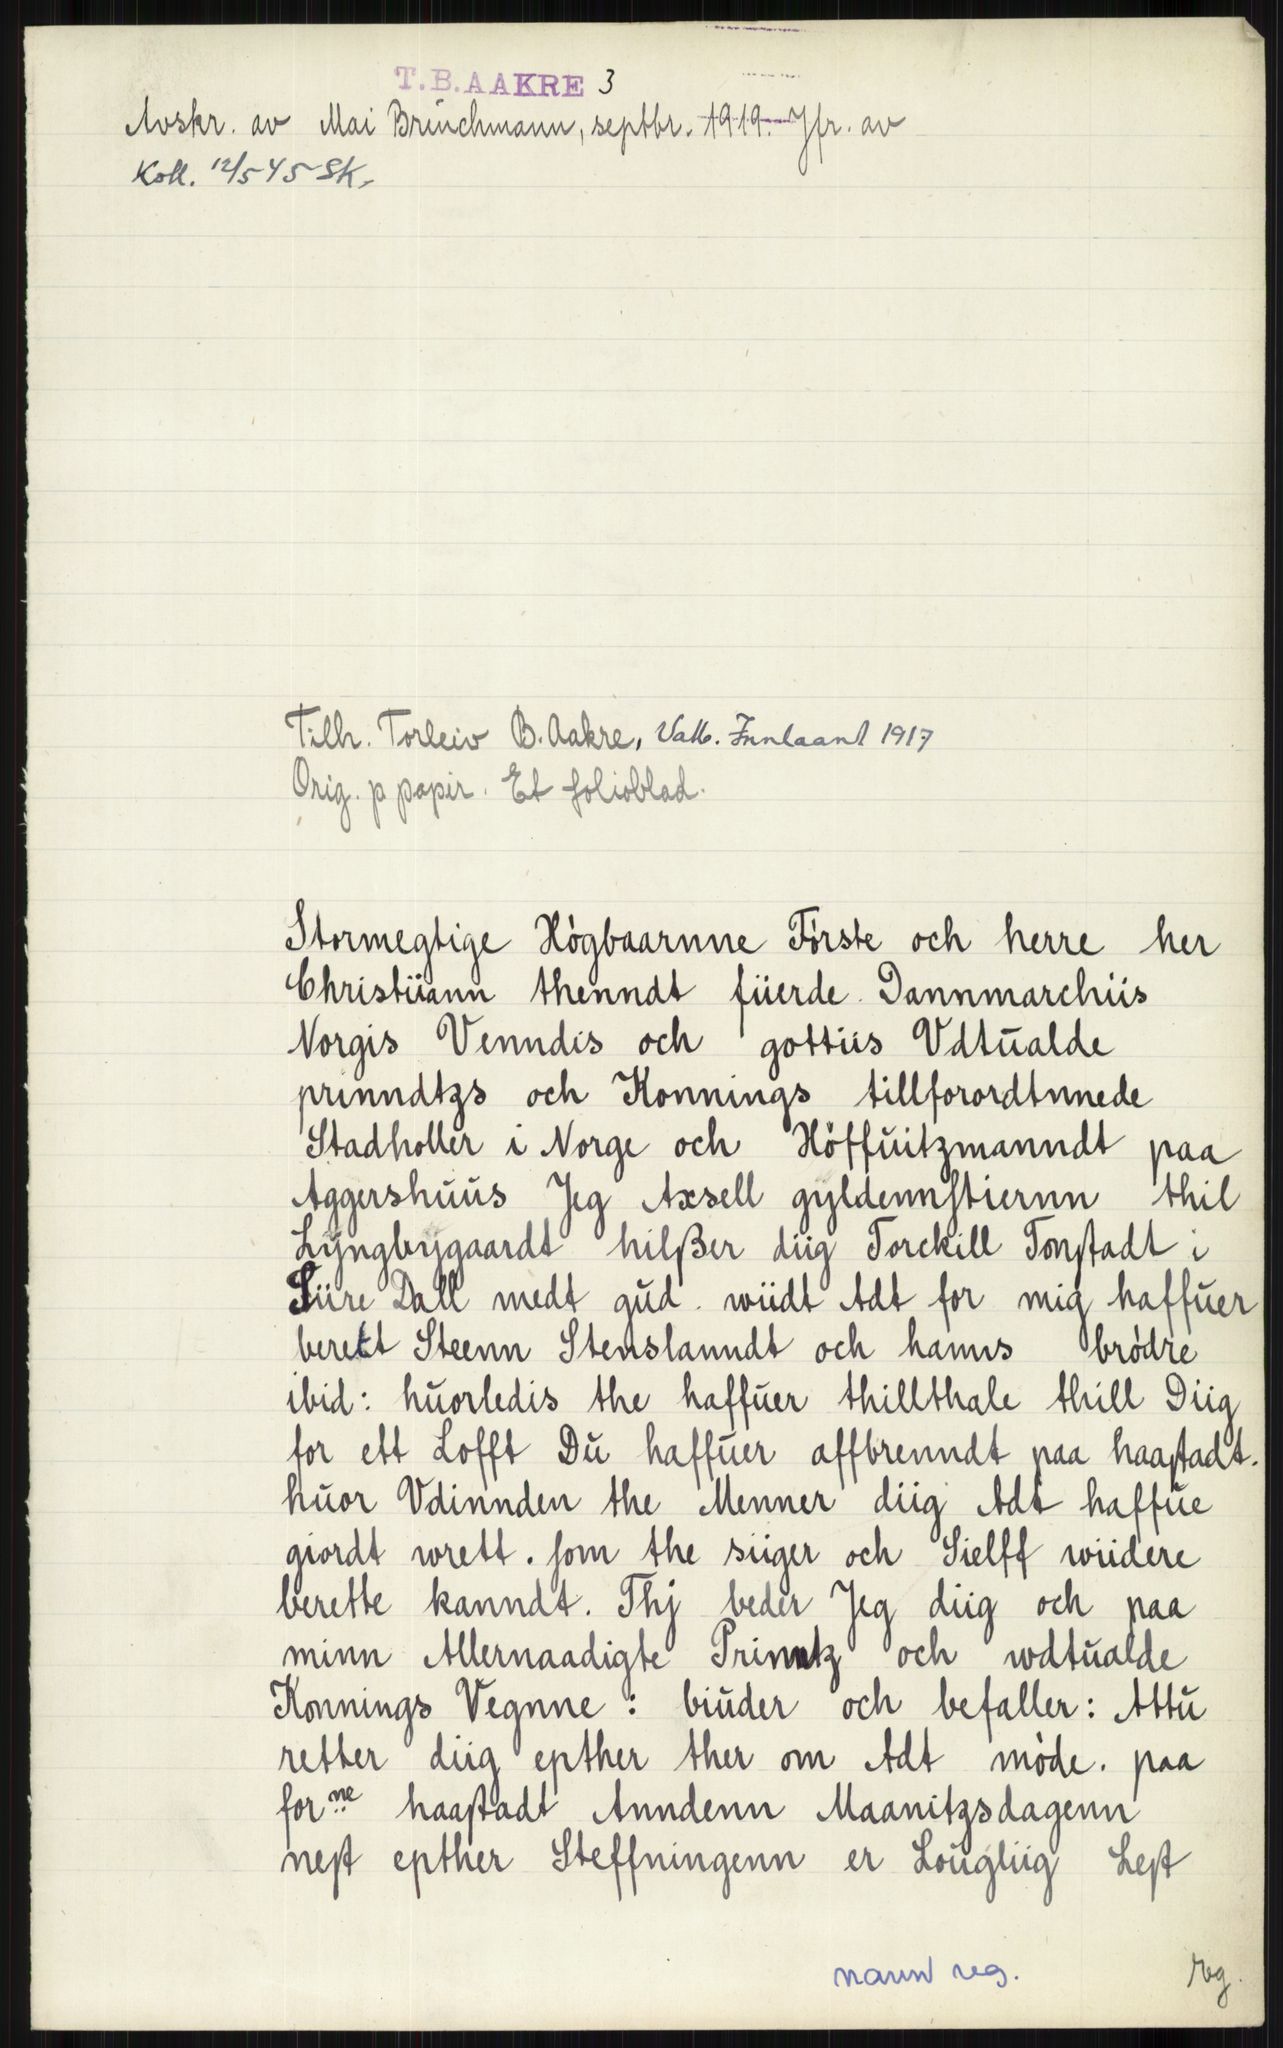 T.B.AAKRE 3
Avskr. av Mai Bruchmann, septbr. 1919. Jfr. av
Koll. 12/5 45 SK.
Tilh. Torleiv B. Aakre, Valle. Innlaant 1917
Orig. p papir. Et folioblad.
Stormegtige Högbaarnne Förste och herre her
Christiiann thenndt fiierde Dannmarchiis
Norgis Venndis och gottiis Vdtualde
prinndtzs och Konnings tillforordtnnede
Stadholler i Norge och Höffuitzmanndt paa
Aggershuus Jeg Axsell gyldennstiernn thil
Lyngbygaardt hilßer diig Torckill Tonstadt i
Siire Dall medt gud. wiidt Adt for mig haffuer
berett Steenn Stenslanndt och hanns brödre
ibid: huorledis the haffuer thillthale thill Diig
for ett Lofft Du haffuer affbrenndt paa haastadt.
huor Vdinnden the Menner diig Adt haffue
giordt wrett. som the siiger och Sielff wiidere
berette kanndt. Thj beder Jeg diig och paa
minn Allernaadigte Prinntz och wdtualde
Konnings Vegnne: biuder och befaller: Attu
retter diig epther ther om Adt möde. paa
for ne haastadt Anndenn Maanitzsdagenn
nest epther Steffningenn er Lougliig Lest
navn reg.
Rg.